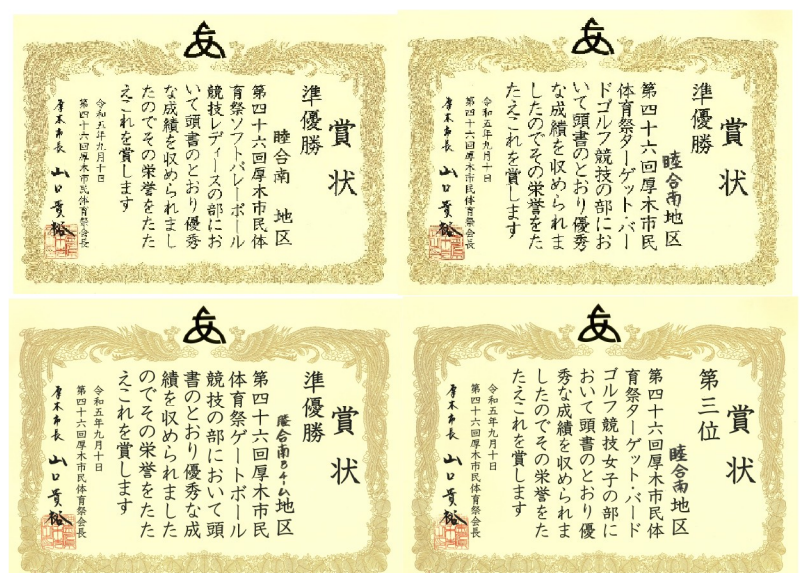 賞状
準優勝
睦合南 地区
第四十六回厚木市民体
育祭ソフトバレーボール
競技レディースの部にお
いて頭書のとおり優秀
な成績を収められまし
たのでその栄誉をたた
えこれを賞します
令和五年九月十日
第四十六回厚木市民体育祭会長
厚木市長 山口貴裕
賞状
準優勝
睦合南地区
第四十六回厚木市民
体育祭ターゲット・バー
ドゴルフ競技の部にお
いて頭書のとおり優秀
な成績を収められま
したのでその栄誉をた
たえこれを賞します
令和五年九月十日
第四十六回厚木市民体育祭会長
厚木市長 山口貴裕
賞状
準優勝
睦合南Bチーム地区
第四十六回厚木市民
体育祭ゲートボール
競技の部において頭
書のとおり優秀な成
績を収められました
のでその栄誉をたた
えこれを賞します
令和五年九月十日
第四十六回厚木市民体育祭会長
厚木市長 山口貴裕
賞状
第三位
睦合南地区
第四十六回厚木市民体
育祭ターゲット・バード
ゴルフ競技女子の部に
おいて頭書のとおり優
秀な成績を収められま
したのでその栄誉をた
たえこれを賞します
令和五年九月十日
第四十六回厚木市民体育祭会長
厚木市長 山口貴裕